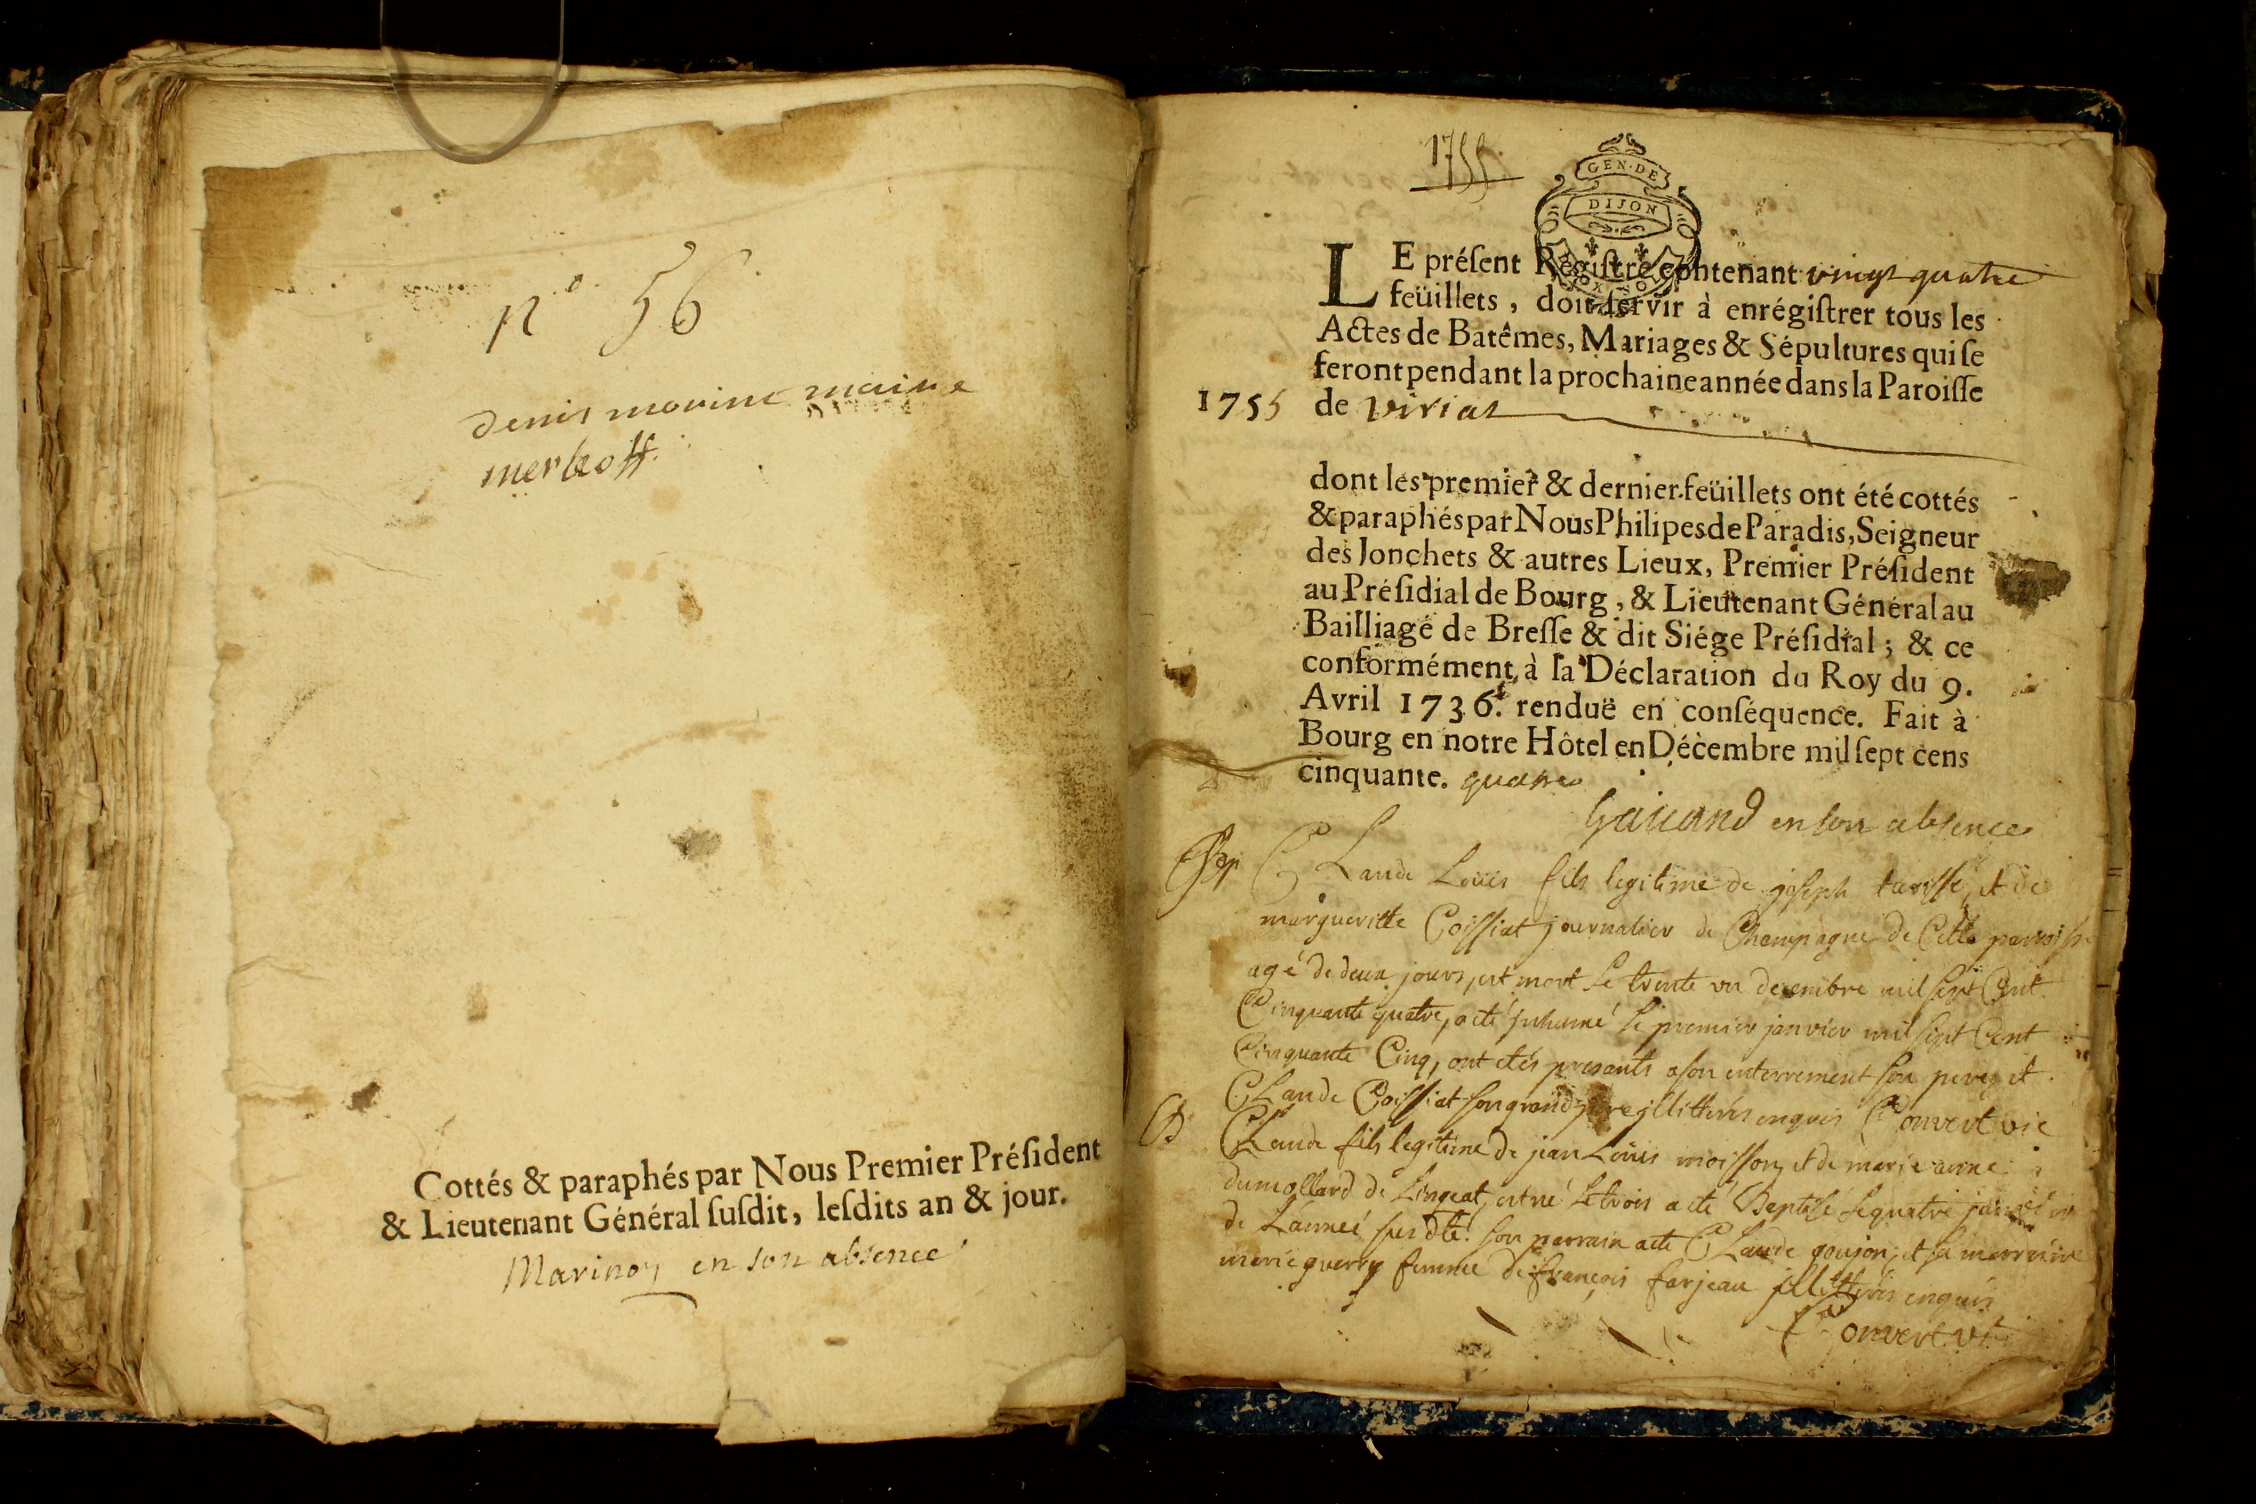 n° 56
denis morine maine
merkoff
Cottés & paraphés par Nous Premier Préſident
& Lieutenant Général ſuſdit, leſdits an & jour.
Marinoy en son absence
1755
GEN. DE
DIJON
LE préſent Régiſtre contenant vingt quatre
feüillets, doit ſervir à enrégiſtrer tous les
Actes de Batêmes, Mariages & Sépultures qui ſe
feront pendant la prochaine année dans la Paroiſſe
1755 de Viriat
dont les premier & dernier feüillets ont été cottés
& paraphés par Nous Philipes de Paradis, Seigneur
des Jonchets & autres Lieux, Premier Préſident
au Préſidial de Bourg, & Lieutenant Général au
Bailliage de Breſſe & dit Siége Préſidial; & ce
conformément à la Déclaration du Roy du 9.
Avril 1736. renduë en conſéquence. Fait à
Bourg en notre Hôtel en Décembre mil ſept cens
cinquante. quatre
en son absence
Claude Loüis fils legitime de joseph et de
margueritte Coissiat journalier de Champagne de Cette parroisse
agé de deux jours, est mort le trente un decembre mil sept Cent
Cinquante quatre, a eté inhumé le premier janvier mil sept Cent
Cinquante Cinq, ont etés presents a son enterrement son pere, et
Claude Coissiat son grand pere jllitterés enquis Convert vic
B Claude fils legitime de jean Loüis moisson, et de marie anne
dumollard de Lingeat, est né le trois a eté Baptisé le quatre janvier
de L'année susdte. son parrain a eté Claude goujon, et sa marraine
marie guerry femme de françois farjeau jllitterés enquis
Convert vic